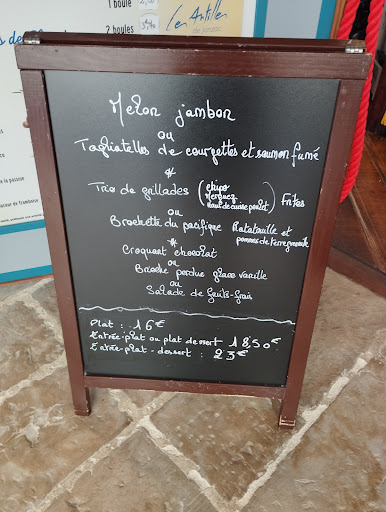 1 boule
2 boules
Les Antilles
de Jonzac
Melon jambon
ou
Tagliatelles de courgettes et saumon fumé
*
Trio de grillades (chipo Merguez haut de cuisse poulet) Frites
ou
Brochette du pacifique Ratatouille et pommes de terre grenaille
*
Croquant chocolat
ou
Brioche perdue glace vanille
ou
Salade de fruits frais
Plat : 16€
Entrée-plat ou plat dessert 18,50€
Entrée-plat-dessert : 23€